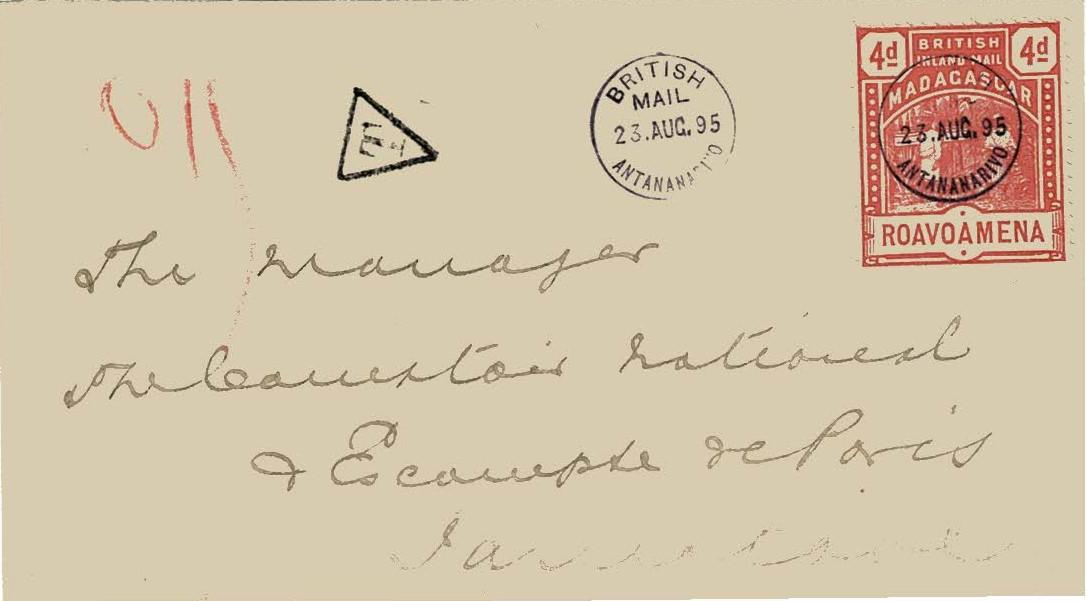 4d BRITISH 4d
INLAND MAIL
MADAGASCAR
23.AUG.95
ANTANANARIVO
ROAVOAMENA
BRITISH
MAIL
23.AUG.95
ANTANANARIVO
The Manager
The Comptoir National
d Escompte de Paris